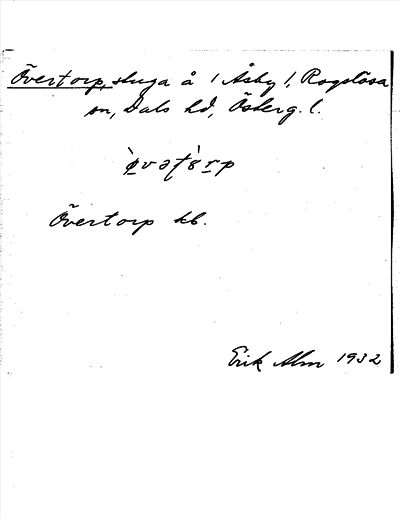 Övertorp, stuga å 1 Åsby 1, Rogslösa
sn, Dals hd, Österg. l.
Övertorp kb.
Erik Alm 1932